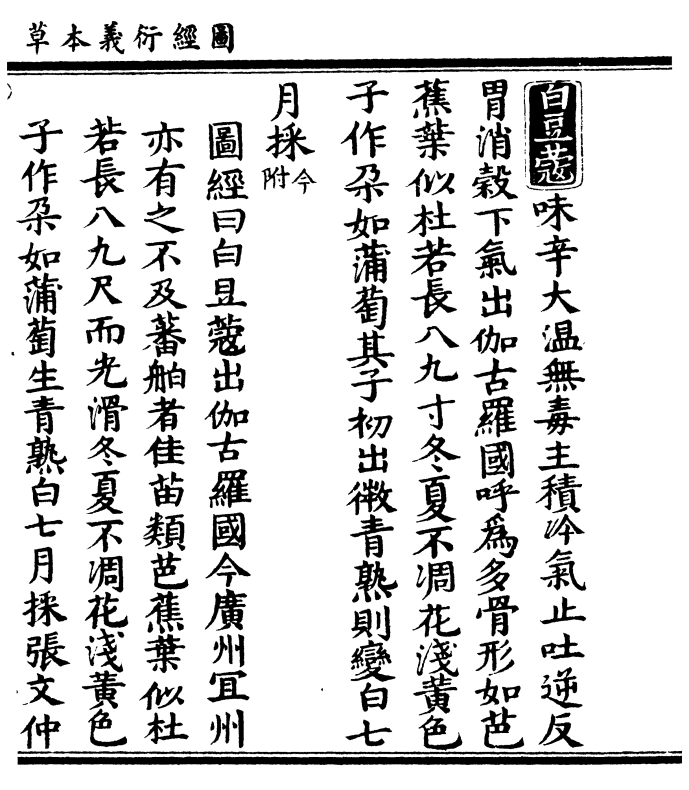 圖經衍義本草
白豆蔻味辛大温無毒主積冷氣止吐逆反
胃消穀下氣出伽古羅國呼爲多骨形如芭
蕉葉似杜若長八九寸冬夏不凋花淺黄色
子作朶如蒲萄其子初出微青熟則變白七
月採今附
圖經曰白豆蔻出伽古羅國今廣州冝州
亦有之不及蕃舶者佳苗類芭蕉葉似杜
若長八九尺而光滑冬夏不凋花淺黄色
子作朶如蒲萄生青熟白七月採張文仲